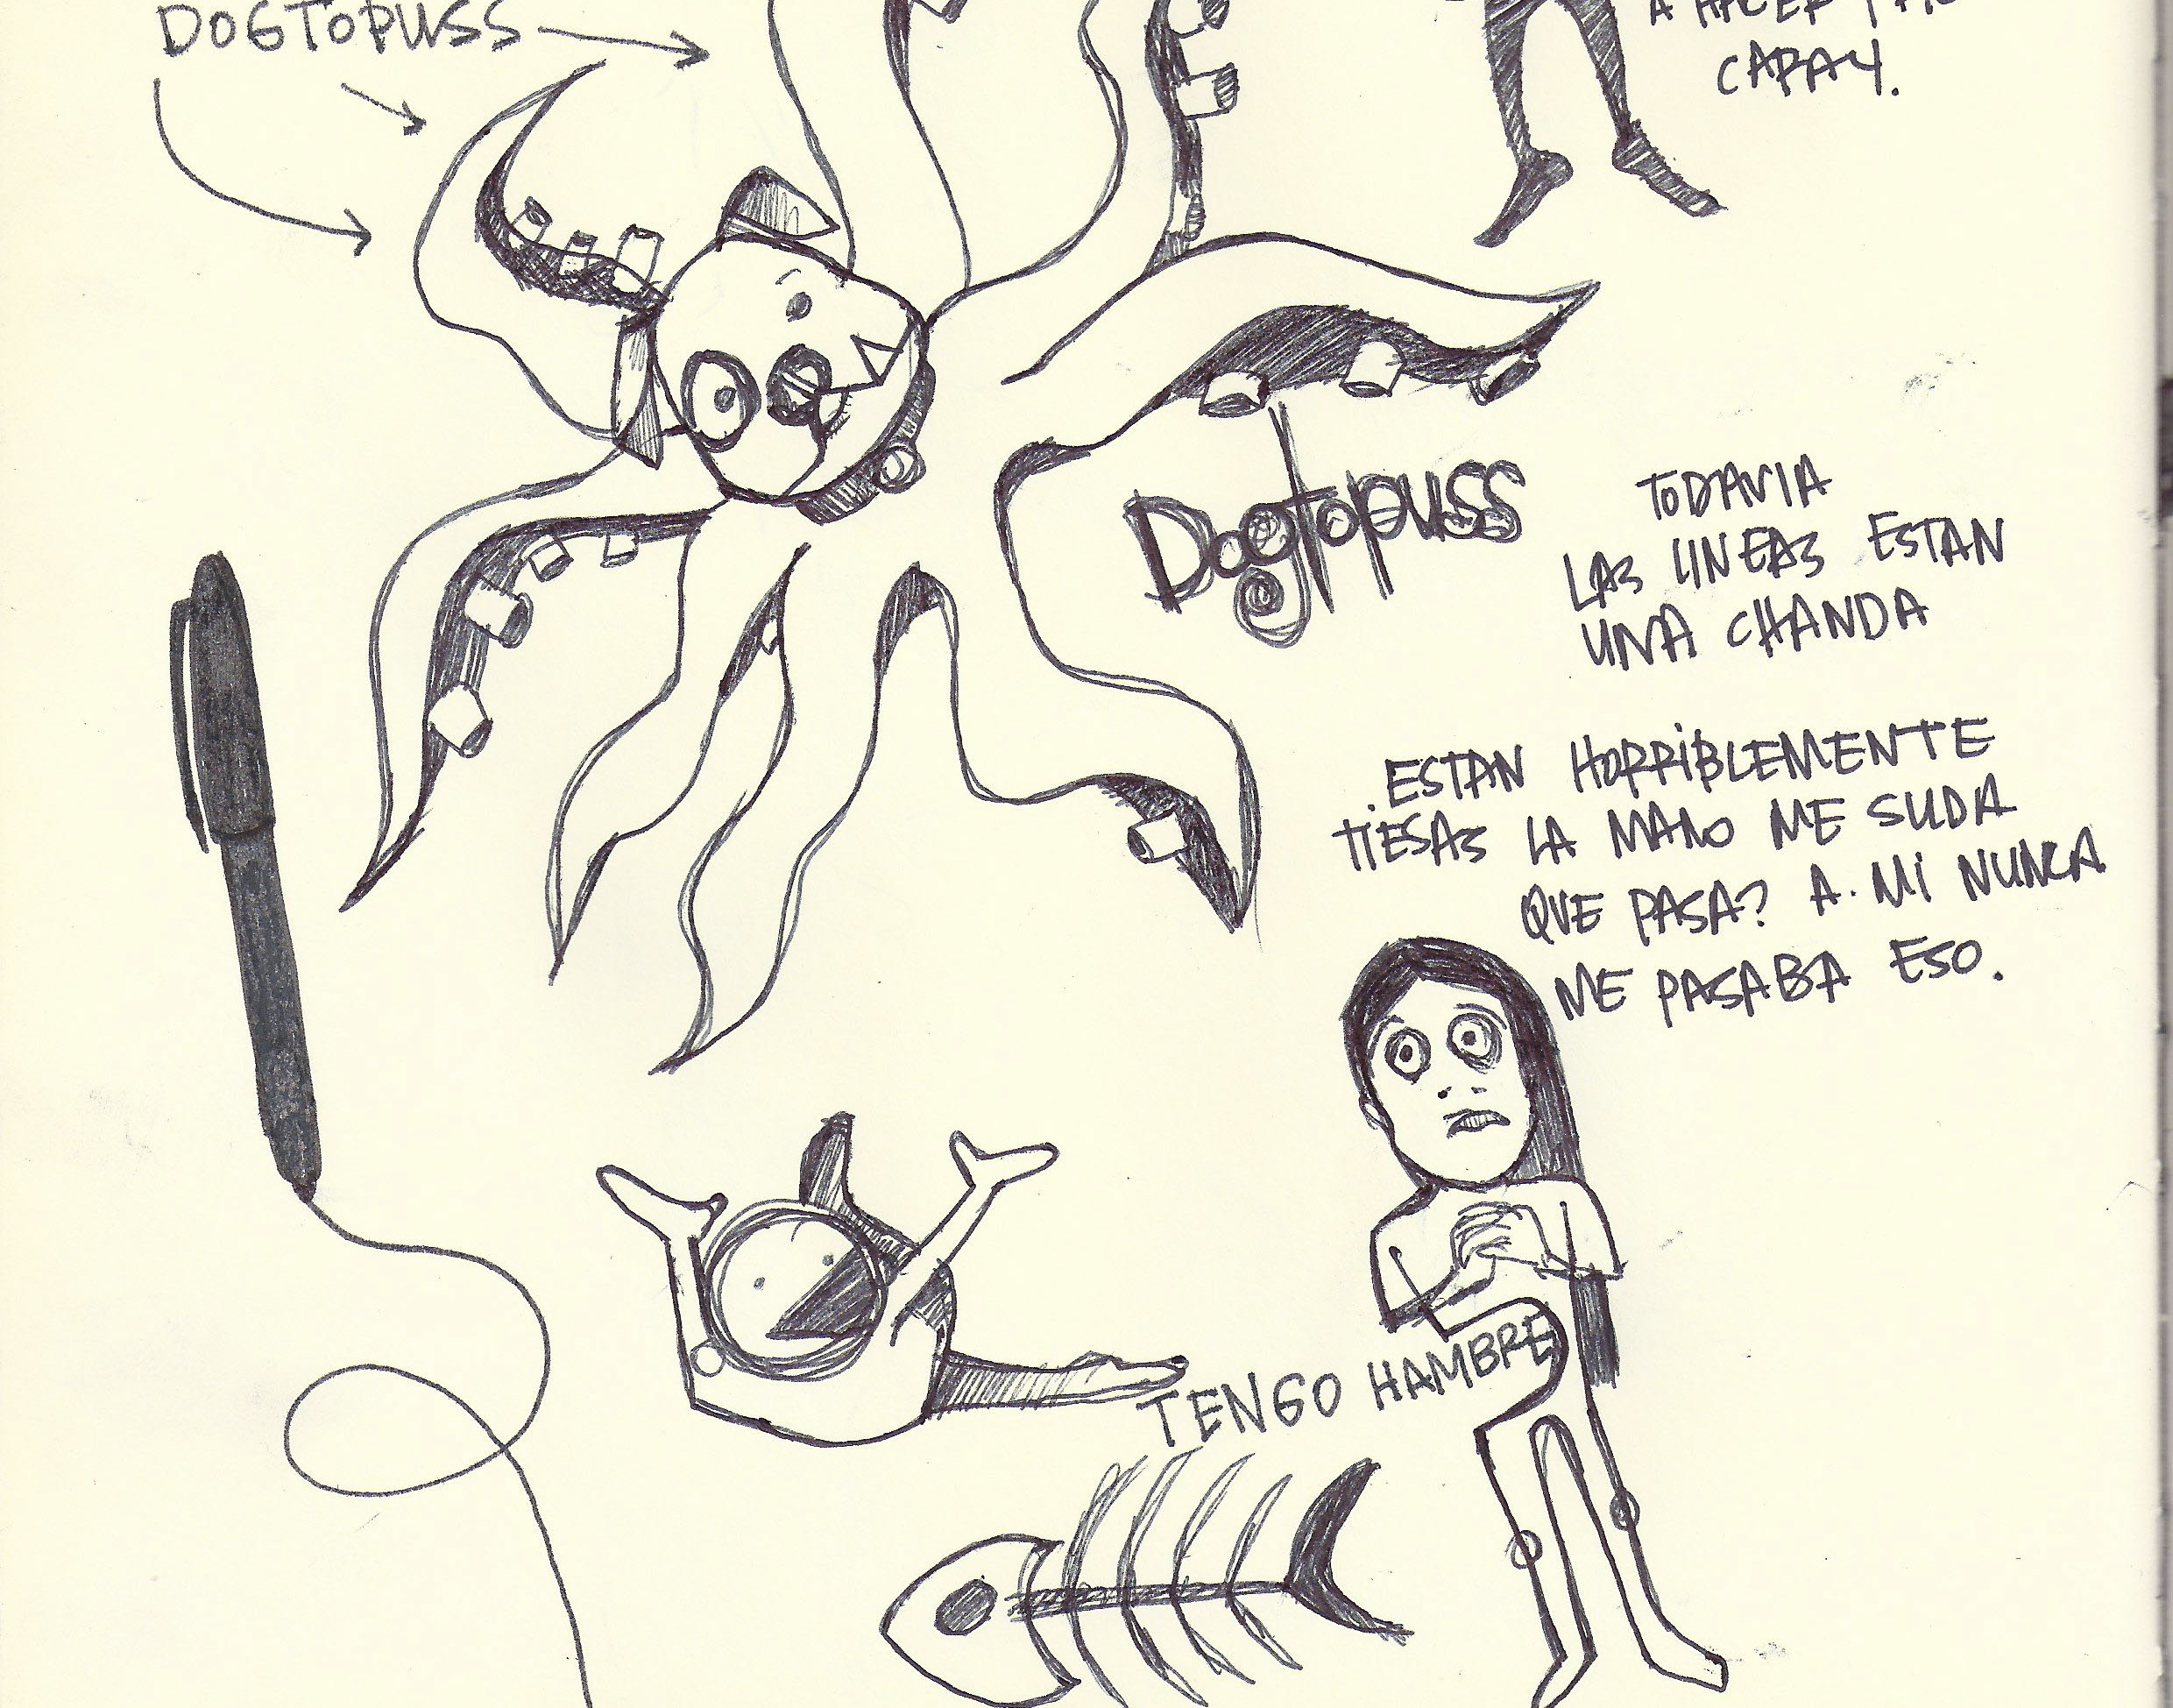 DOGTOPUSS
A HACER
CAPAY.
Dogtopuss
TODAVIA
LAS LINEAS ESTAN
UNA CHANDA
.ESTAN HORRIBLEMENTE
TIESAS LA MANO ME SUDA
QUE PASA? A MI NUNCA
ME PASABA ESO.
TENGO HAMBRE